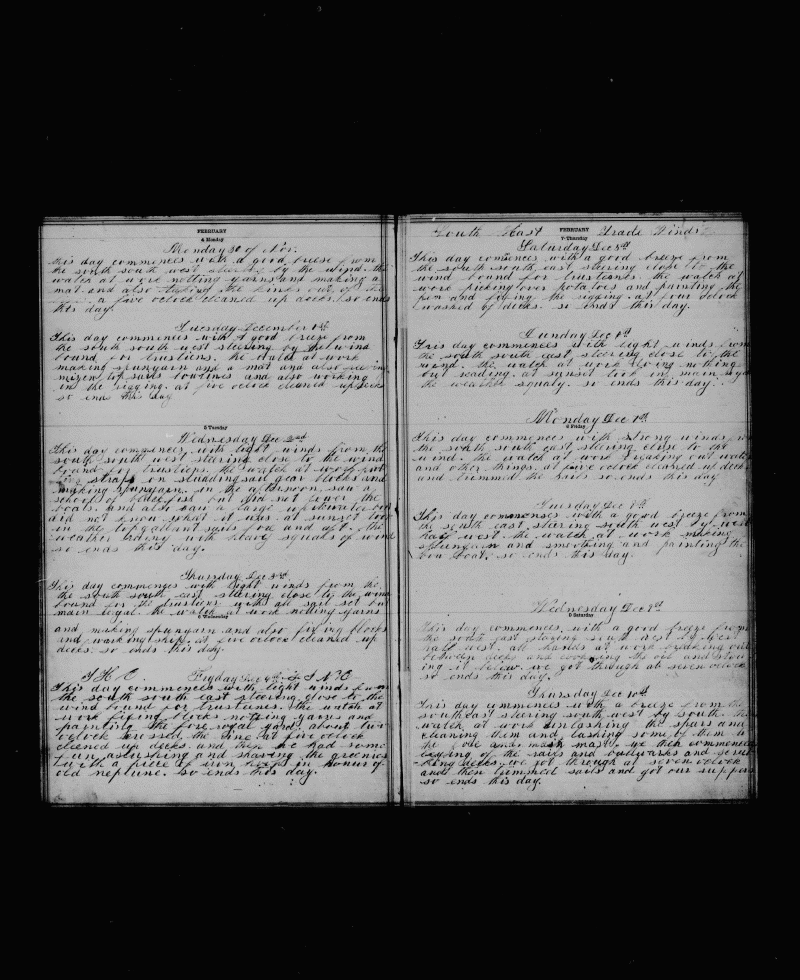 FEBRUARY
4 Monday
Monday 30 of Nov.
this day commences with a good breeze from
the south south west steering by the wind. the
watch at work notting yarns and making a
mat and also taking the kinks out of the
a five oclock cleaned up decks. so ends
this day.
Tuesday December 1st
This day commences with a good breeze from
the south south west steering by the wind
bound for trustiens. the watch at work
making spunyarn and a mat and also
mizen to said boutines and also working
in the rigging. at five oclock cleaned up decks
so ends this day
5 Tuesday
Wednesday Dec 2nd
This day commences with light winds from the
south south west steering close to the wind
bound for trustiens. the watch at work
straps on studdingsail gear blocks and
making spunyarn. in the afternoon saw a
school of blackfish but did not lower the
boats. and also saw a large
did not know what it was. at sunset took
in the topgallant sails fore and aft. the
weather being with heavy squals of wind
so ends this day.
Thursday Dec 3rd
This day commences with light winds from the
the south south east steering close to the wind
bound for the trustiens with all sail set but
main royal. the watch at work notting yarns
6 Wednesday
and making spunyarn and also fixing blocks
and working ship. at five oclock cleaned up
decks. so ends this day.
Friday Dec 4th
This day commences with light winds from
the south south east steering close to the
wind bound for trustines. the watch at
work fixing blocks notting yarns and
painting the fore royal yard. about
oclock crossed the line. at five oclock
cleaned up decks and then we had some
fun astushing and shaving the greenies
with a piece of iron hoops in honur of
old neptune. So ends this day.
South East Trade Winds
FEBRUARY
7 Thursday
Saturday Dec 5th
This day comences with a good breeze from
the south south east steering close to the
wind bound for trustens. the watch at
work picking over potatoes and painting the
pen and fixing the rigging. at four oclock
washed up decks. so ends this day.
Sunday Dec 6th
This day commences with light winds from
the south south east steering close to the
wind. the watch at work doing nothing
but reading. at sunset took in main
the weather squaly. so ends this day.
Monday Dec 7th
8 Friday
This day commences with strong winds
the south south east steering close to the
wind. the watch at work breaking out water
and other things. at five oclock cleaned up decks
and trimmed the sails so ends this day
Tuesday Dec 8th
This day commenses with a good breeze from
the south east steering south west by west
half west. the watch at work making
spunyarn and smoothing and painting the
bow boat. so ends this day.
Wednesday Dec 9th
9 Saturday
This day commences with a good breeze from
the south east steering south west by west
half west. all hands at work breaking out
between decks and cooking the oil and stow
ing it below. we got through at seven oclock
so ends this day.
Thursday Dec 10th
This day commences with a breeze from the
southeast steering south west by south. the
watch at work unlashing the spars and
cleaning them and lashing some of them to
the fore and main mast. we then commenced
of the rails and bulwarks and scrub
-bing decks. we got through at seven oclock
and then trimmed sails and got our suppers
so ends this day.